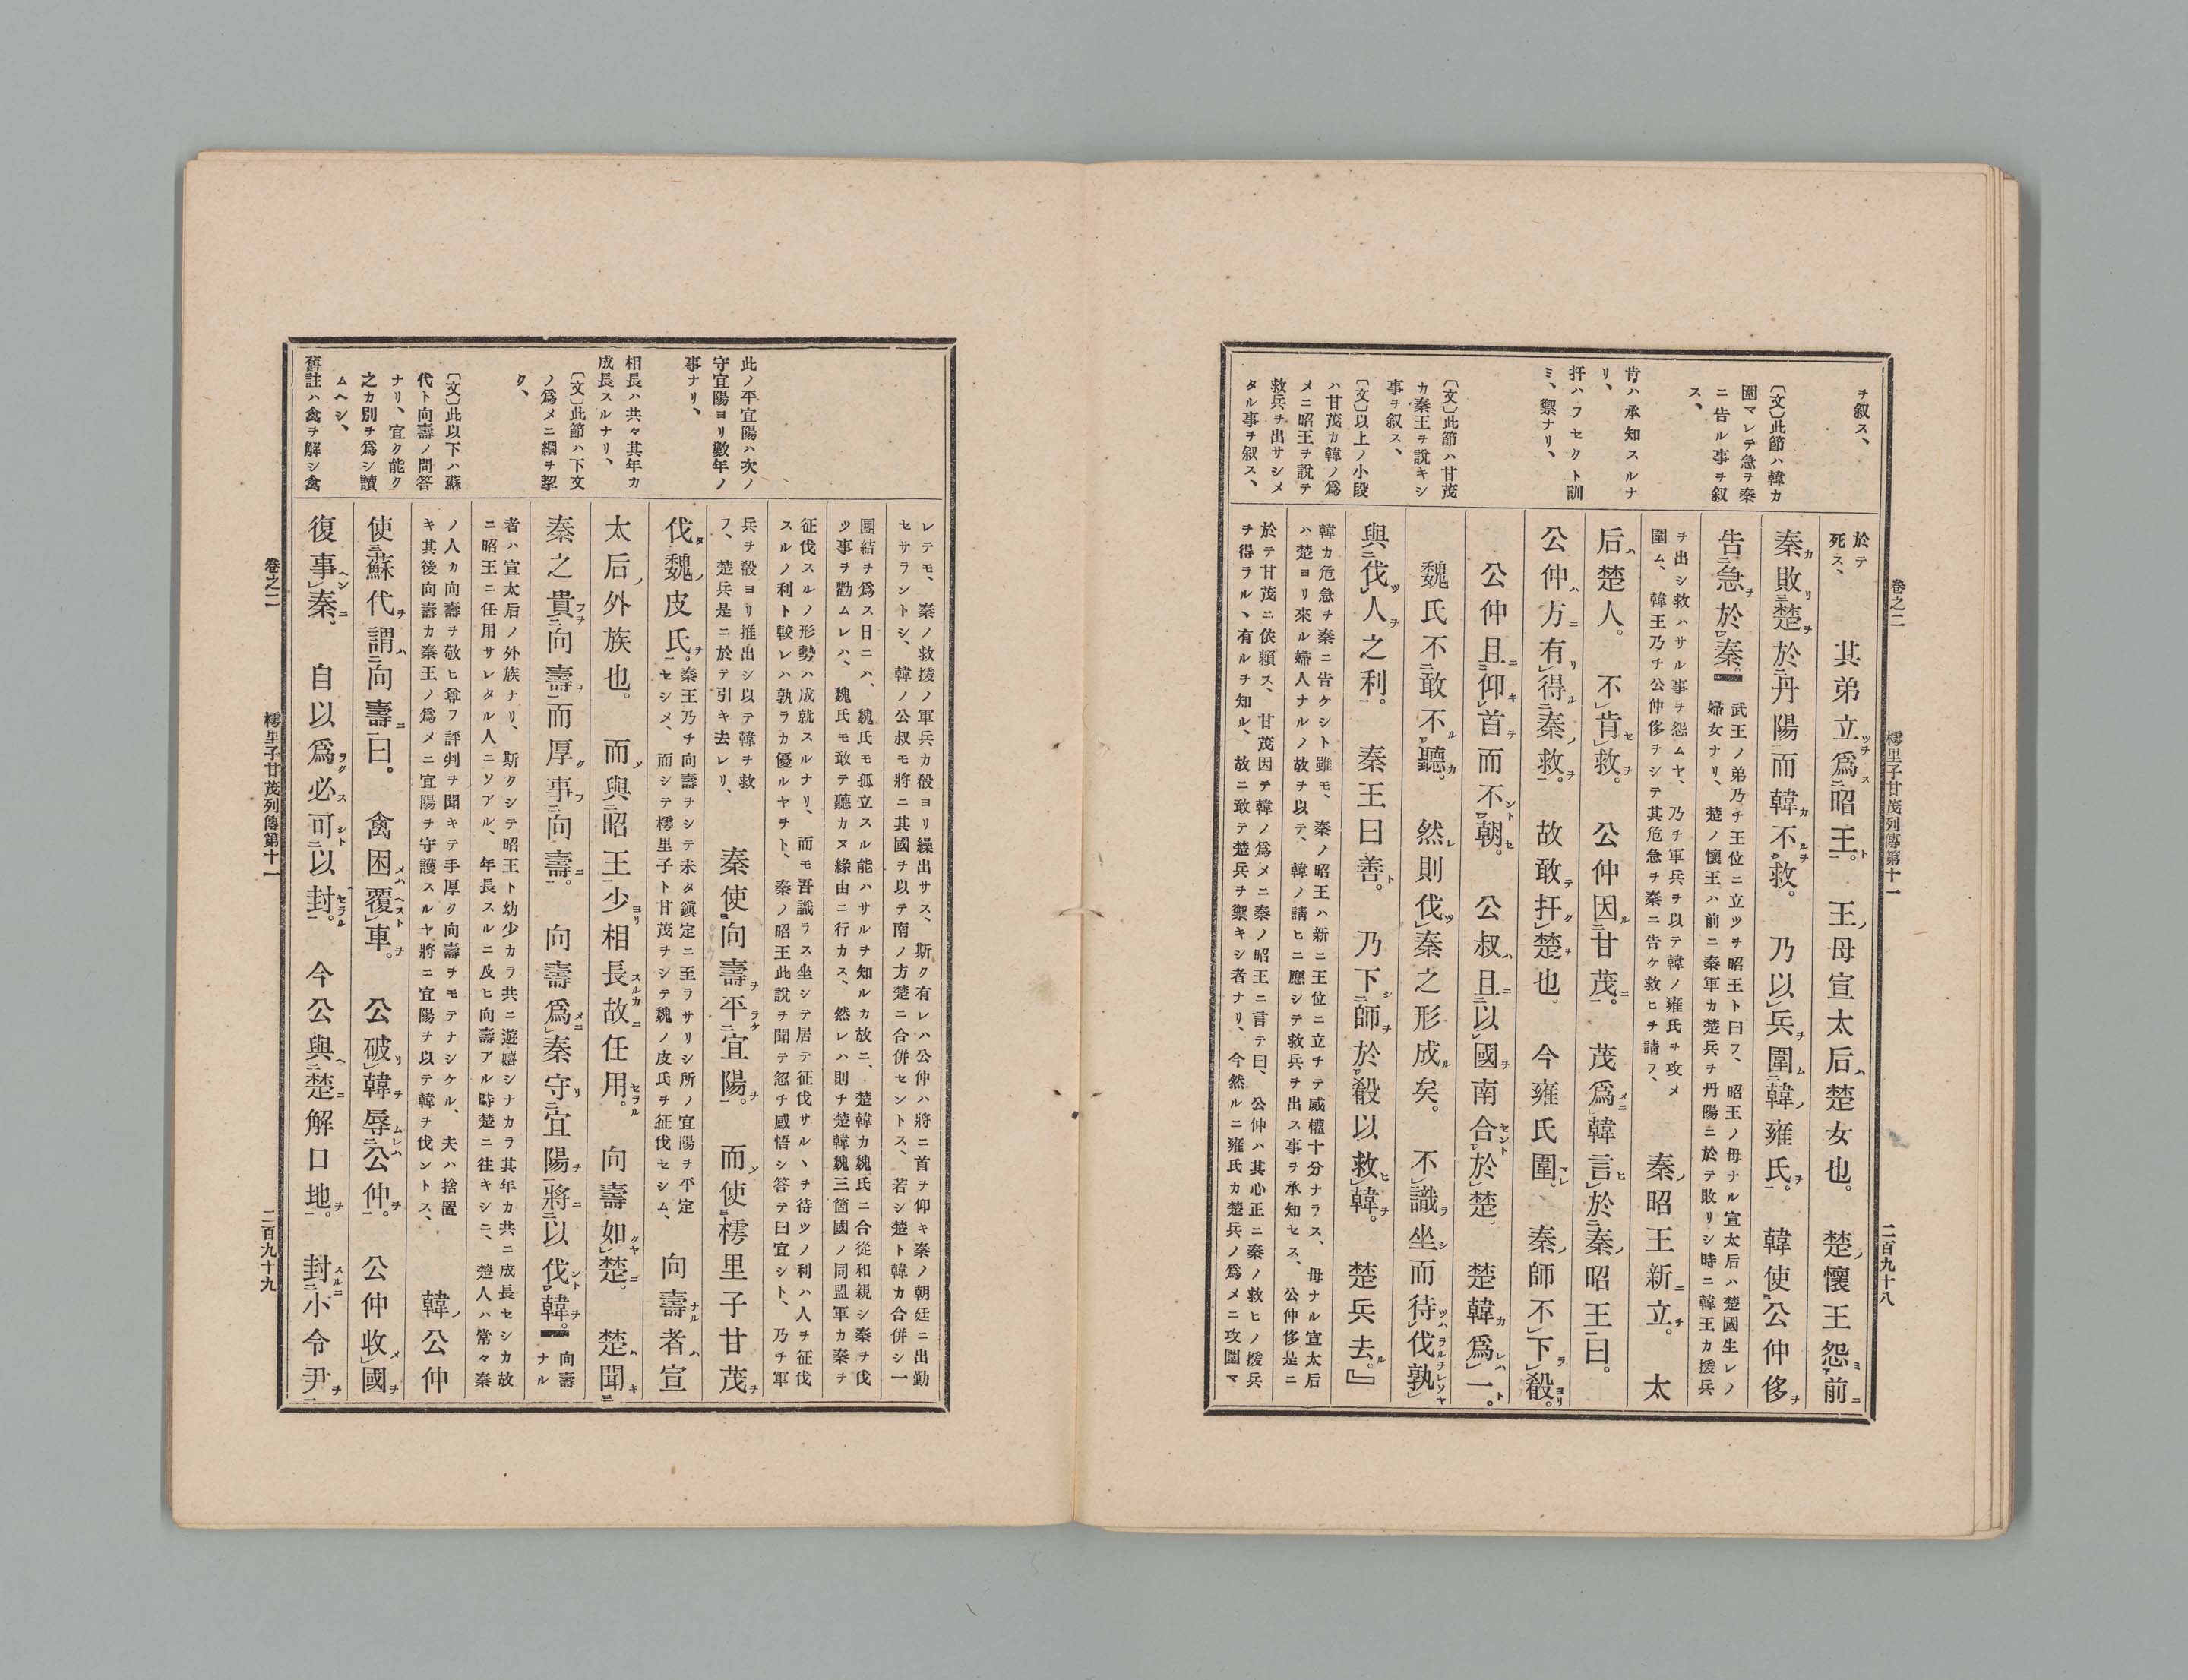 卷之二
樗里子甘茂列傳第十一
二百九十八
ヲ叙ス、
〔文〕此節ハ韓カ
圍マレテ急ヲ秦
ニ告ル事ヲ叙
ス、
肯ハ承知スルナ
リ、
扞ハフセクト訓
ミ、禦ナリ、
〔文〕此節ハ甘茂
カ秦王ヲ說キシ
事ヲ叙ス、
〔文〕以上ノ小段
ハ甘茂カ韓ノ爲
メニ昭王ヲ說テ
救兵ヲ出サシメ
タル事ヲ叙ス、
於テ
死ス、
其弟立爲昭王。王母宣太后楚女也。楚懷王怨前
秦敗楚於丹陽而韓不救。乃以兵圍韓雍氏。韓使公仲侈
告急於秦。
武王ノ弟乃チ王位ニ立ツヲ昭王ト曰フ、昭王ノ母ナル宣太后ハ楚國生レノ
婦女ナリ、楚ノ懷王ハ前ニ秦軍カ楚兵ヲ丹陽ニ於テ敗リシ時ニ韓王カ援兵
ヲ出シ救ハサル事ヲ怨ムヤ、乃チ軍兵ヲ以テ韓ノ雍氏ヲ攻メ
圍ム、韓王乃チ公仲侈ヲシテ其危急ヲ秦ニ告ケ救ヒヲ請フ、
秦昭王新立。太
后楚人。不肯救。公仲因甘茂。茂爲韓言於秦昭王曰。
公仲方有得秦救。故敢扞楚也。今雍氏圍。秦師不下殽。
公仲且仰首而不朝。公叔且以國南合於楚。楚韓爲一。
魏氏不敢不聽。然則伐秦之形成矣。不識坐而待伐孰
與伐人之利。秦王曰善。乃下師於殽以救韓。楚兵去。』
韓カ危急ヲ秦ニ告ケシト雖モ、秦ノ昭王ハ新ニ王位ニ立チテ威權十分ナラス、母ナル宣太后
ハ楚ヨリ來ル婦人ナルノ故ヲ以テ、韓ノ請ヒニ應シテ救兵ヲ出ス事ヲ承知セス、公仲侈是ニ
於テ甘茂ニ依賴ス、甘茂因テ韓ノ爲メニ秦ノ昭王ニ言テ曰、公仲ハ其心正ニ秦ノ救ヒノ援兵
ヲ得ラルヽ有ルヲ知ル、故ニ敢テ楚兵ヲ禦キシ者ナリ、今然ルニ雍氏カ楚兵ノ爲メニ攻圍マ
此ノ平宜陽ハ次ノ
守宜陽ヨリ數年ノ
事ナリ、
相長ハ共々其年カ
成長スルナリ、
〔文〕此節ハ下文
ノ爲メニ綱ヲ挈
ク、
〔文〕此以下ハ蘇
代ト向壽ノ問答
ナリ、宜ク能ク
之カ別ヲ爲シ讀
ムヘシ、
舊註ハ禽ヲ解シ禽
レテモ、秦ノ救援ノ軍兵カ殽ヨリ繰出サス、斯ク有レハ公仲ハ將ニ首ヲ仰キ秦ノ朝廷ニ出勤
セサラントシ、韓ノ公叔モ將ニ其國ヲ以テ南ノ方楚ニ合併セントス、若シ楚ト韓カ合併シ一
團結ヲ爲ス日ニハ、魏氏モ孤立スル能ハサルヲ知ルカ故ニ、楚韓カ魏氏ニ合從和親シ秦ヲ伐
ツ事ヲ勸ムレハ、魏氏モ敢テ聽カヌ緣由ニ行カス、然レハ則チ楚韓魏三箇國ノ同盟軍カ秦ヲ
征伐スルノ形勢ハ成就スルナリ、而モ吾識ラス坐シテ居テ征伐サルヽヲ待ツノ利ハ人ヲ征伐
スルノ利ト較レハ孰ラカ優ルヤヲト、秦ノ昭王此說ヲ聞テ忽チ感悟シ答テ曰宜シト、乃チ軍
兵ヲ殽ヨリ推出シ以テ韓ヲ救
フ、楚兵是ニ於テ引キ去レリ、
秦使向壽平宜陽。而使樗里子甘茂
伐魏皮氏。
秦王乃チ向壽ヲシテ未タ鎭定ニ至ラサリシ所ノ宜陽ヲ平定
セシメ、而シテ樗里子ト甘茂ヲシテ魏ノ皮氏ヲ征伐セシム、
向壽者宣
太后外族也。而與昭王少相長故任用。向壽如楚。楚聞
秦之貴向壽而厚事向壽。向壽爲秦守宜陽將以伐韓。
向壽
ナル
者ハ宣太后ノ外族ナリ、斯クシテ昭王ト幼少カラ共ニ遊嬉シナカラ其年カ共ニ成長セシカ故
ニ昭王ニ任用サレタル人ニソアル、年長スルニ及ヒ向壽アル時楚ニ往キシニ、楚人ハ常々秦
ノ人カ向壽ヲ敬ヒ尊フ評判ヲ聞キテ手厚ク向壽ヲモテナシケル、夫ハ捨置
キ其後向壽カ秦王ノ爲メニ宜陽ヲ守護スルヤ將ニ宜陽ヲ以テ韓ヲ伐ントス、
韓公仲
使蘇代謂向壽曰。禽困覆車。公破韓辱公仲。公仲收國
復事秦。自以爲必可以封。今公與楚解口地。封小令尹
卷之二
樗里子甘茂列傳第十一
二百九十九